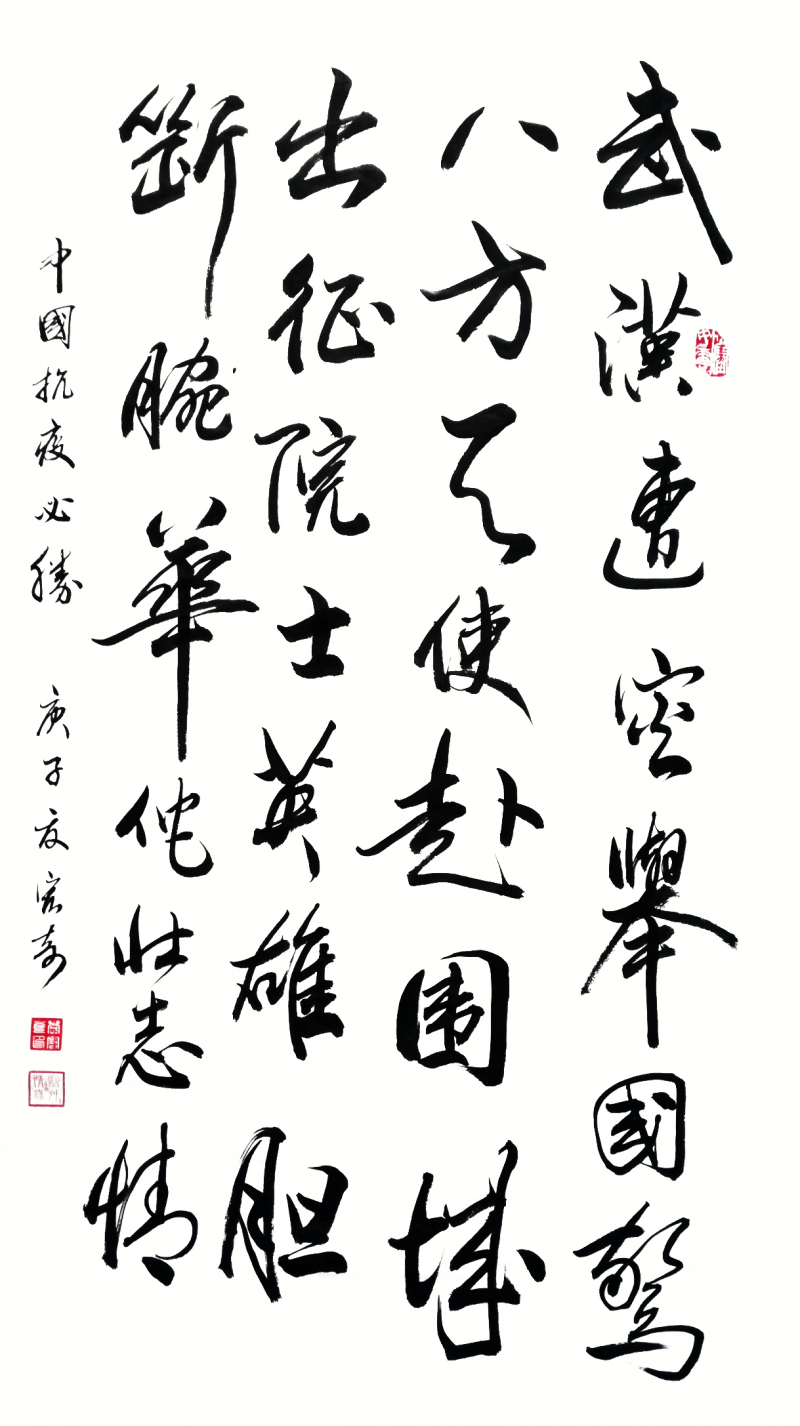 武漢遭舉國驚
八方天使赴围城
出征院士英雄胆
斷腕華佗壯志情
中國抗疫必勝 庚子夏宏奇